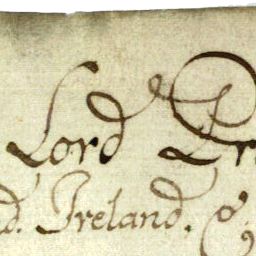 Lord
d. Ireland. &